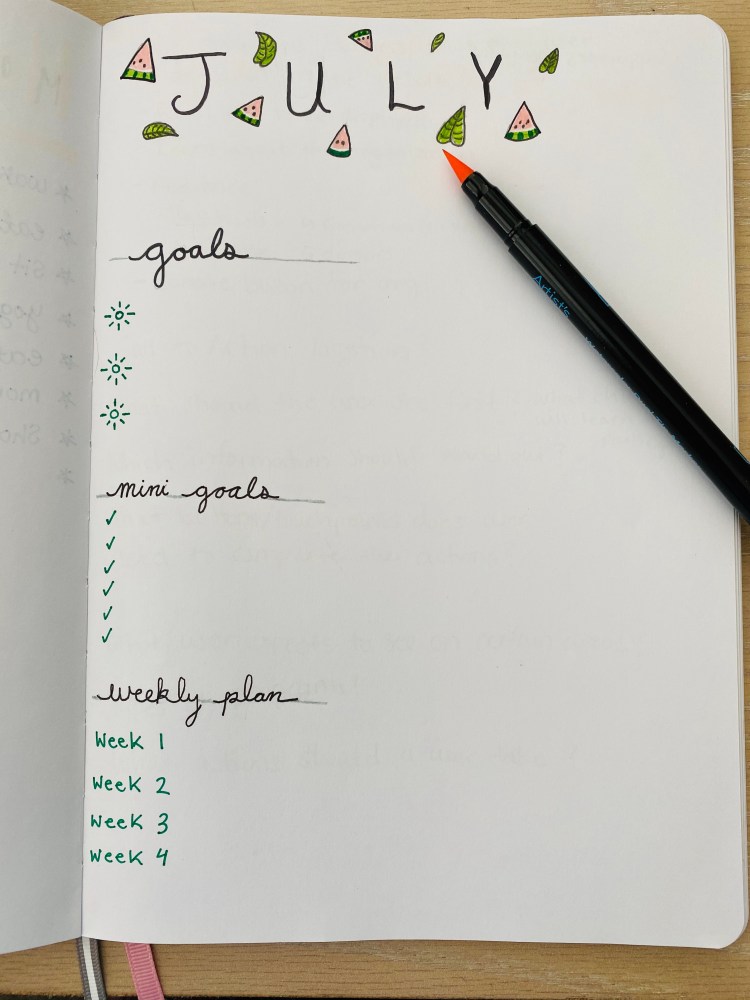 JULY
Artist's
goals
mini goals
weekly plan
Week 1
Week 2
Week 3
Week 4